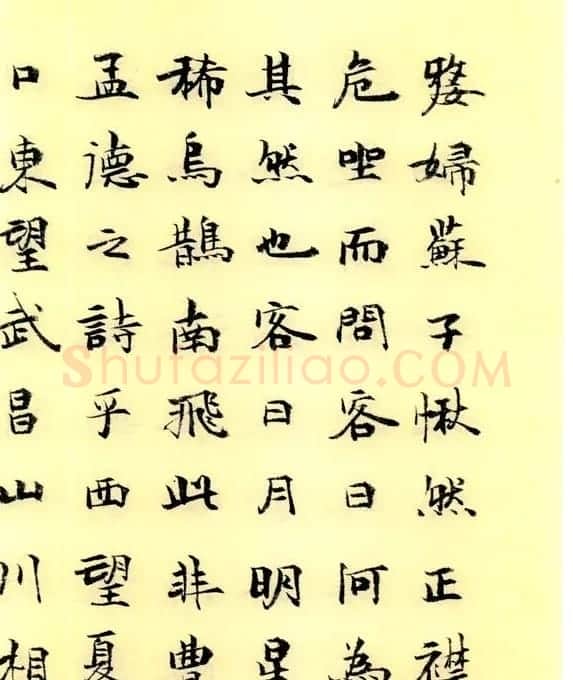 嫠婦蘇子愀然正襟
危坐而問客曰何為
其然也客曰月明星
稀烏鵲南飛此非曹
孟德之詩乎西望夏
口東望武昌山川相
Shufaziliao.COM